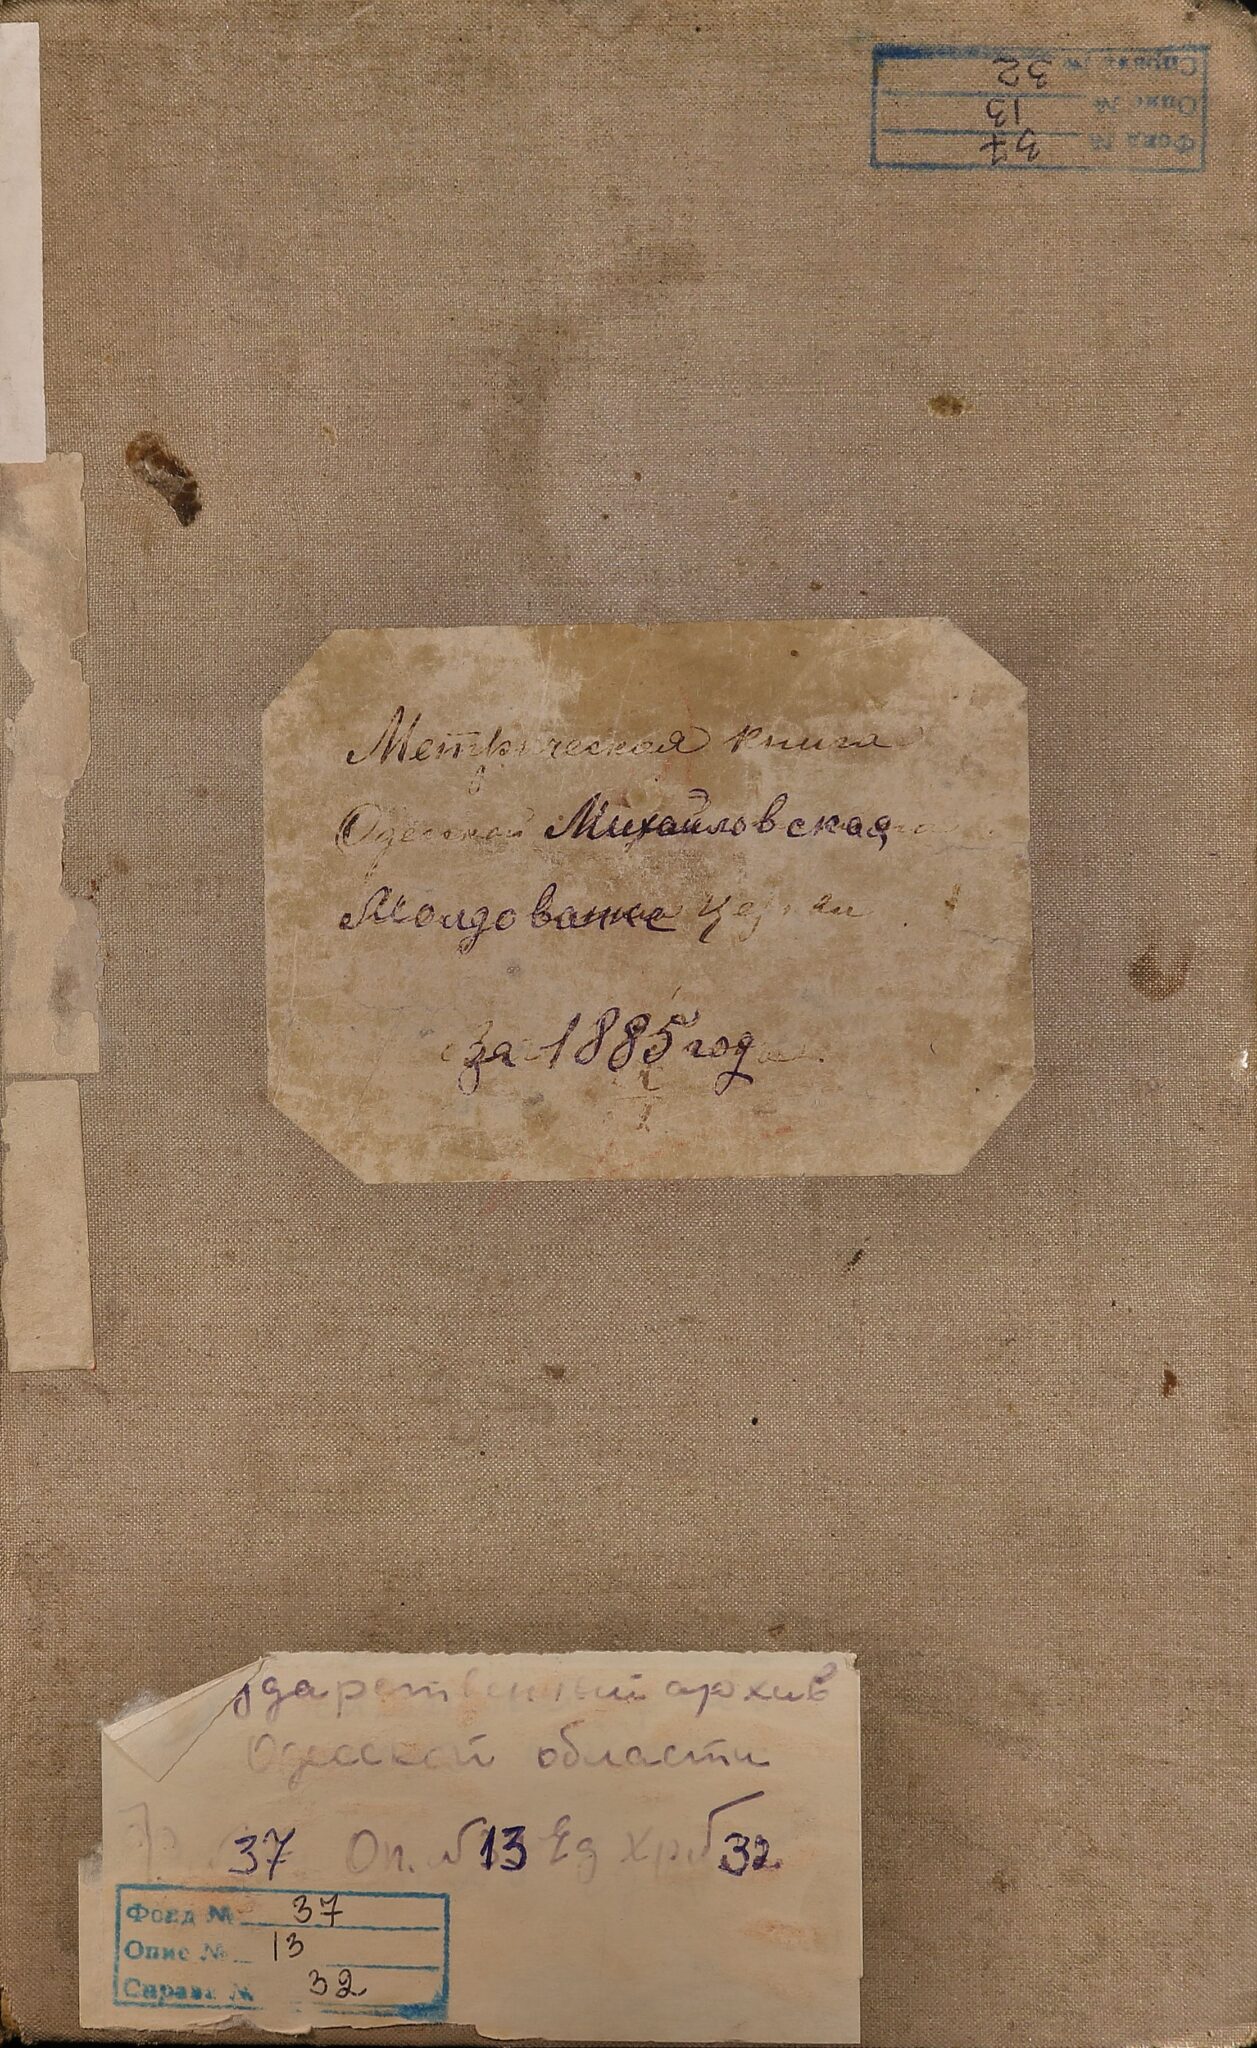 Справа № 32
Опис № 13
Фонд № 37
Метрическая книга
Одесской Михайловская
Молдованке церкви
за 1885 год
ударственный архив
Одесской области
Ф 37 Оп. № 13 Ед Хр № 32
Фонд № 37
Опис № 13
Справа № 32